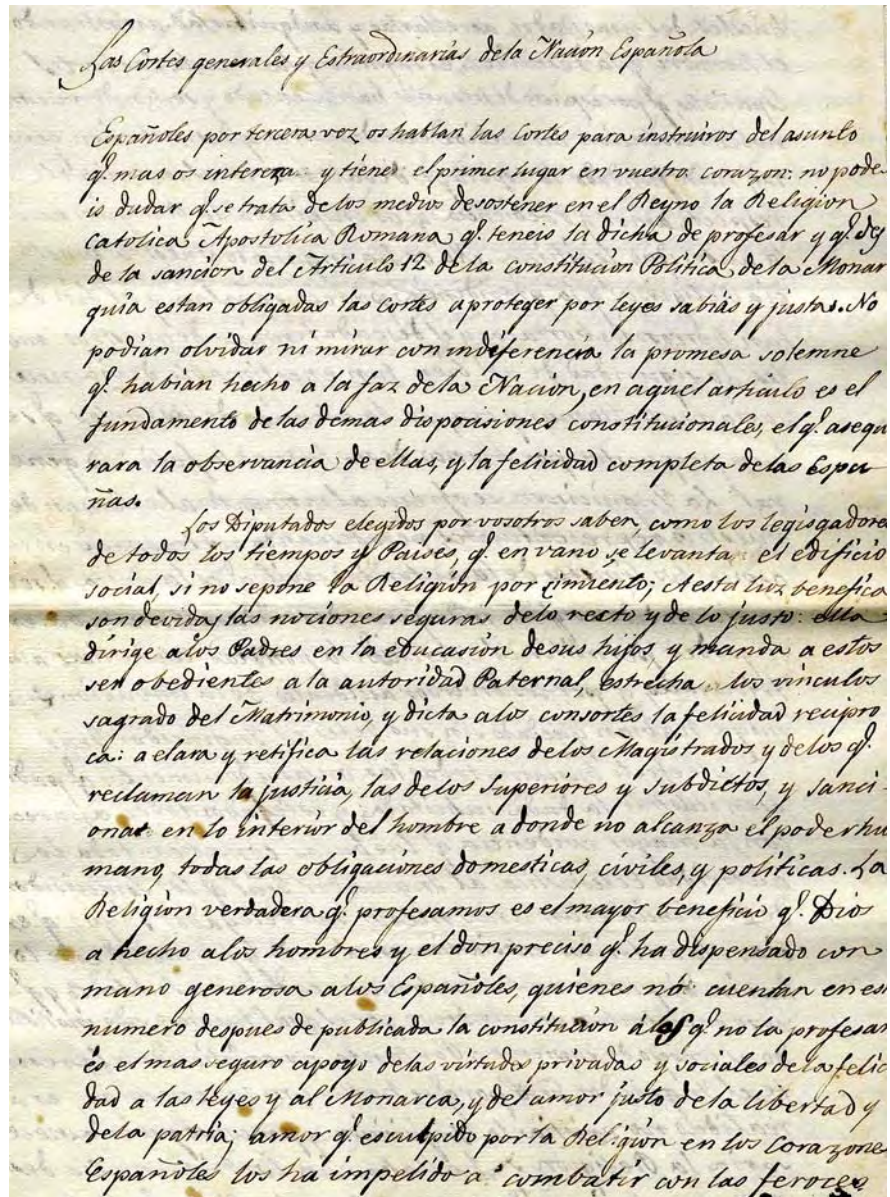 Las Cortes generales y Estraordinarias de la Nacion Española
Españoles por tercera vez os hablan las Cortes para instruiros del asunto
q.e mas os intereza y tiene el primer lugar en vuestro corazon: no pode-
is dudar q.e se trata de los medios de sostener en el Reyno la Religion
Catolica Apostolica Romana q.e teneis la dicha de profesar y q.e
de la sancion del Articulo 12 de la constitucion Politica de la Monar
quia estan obligadas las cortes a proteger por leyes sabias y justas. No
podian olvidar ni mirar con indiferencia la promesa solemne
q.e habian hecho a la faz de la Nacion, en aquel articulo es el
fundamento de las demas disposisiones constitucionales, el q.e asegu
rara la observancia de ellas, y la felicidad completa de las Espa
ñas.
Los Diputados elegidos por vosotros saben, como los legisgadores
de todos los tiempos y Paises, q.e en vano se levanta el edificio
social, si no se pone la Religion por cimiento; A esta luz benefica
son devidas las nociones seguras de lo recto y de lo justo: ella
dirige a los Padres en la educasion de sus hijos, y manda a estos
ser obedientes a la autoridad Paternal, estrecha los vinculos
sagrado del Matrimonio, y dicta a los consortes la felicidad recipro
ca: aclara y retifica las relaciones de los Magistrados y de los q.e
reclaman la justicia, las de los Superiores y subdictos, y sanci-
onar en lo interior del hombre a donde no alcanza el poder hu
mano, todas las obligaciones domesticas, civiles, y politicas. La
Religion verdadera q.e profesamos es el mayor beneficio q.e Dios
a hecho a los hombres y el don preciso q.e ha dispensado con
mano generosa a los Españoles, quienes nó cuentan en es
numero despues de publicada la constitucion á los q.e no la profesan
és el mas seguro apoyo de las virtudes privadas y sociales de la felic
dad a las leyes y al Monarca, y del amor justo de la libertad y
de la patria; amor q.e esculpido por la Religion en los corazone
Españoles los ha impelido a combatir con las feroces